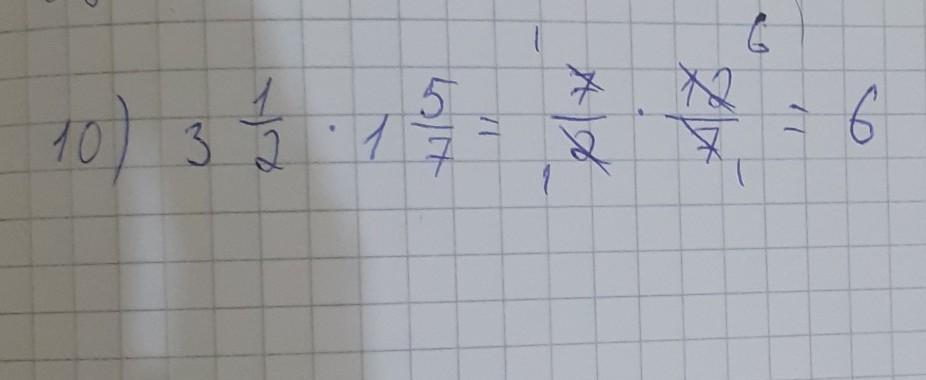 10) 3 1/2 · 1 5/7 = 7/2 · 12/7 = 6
1 6
1 1